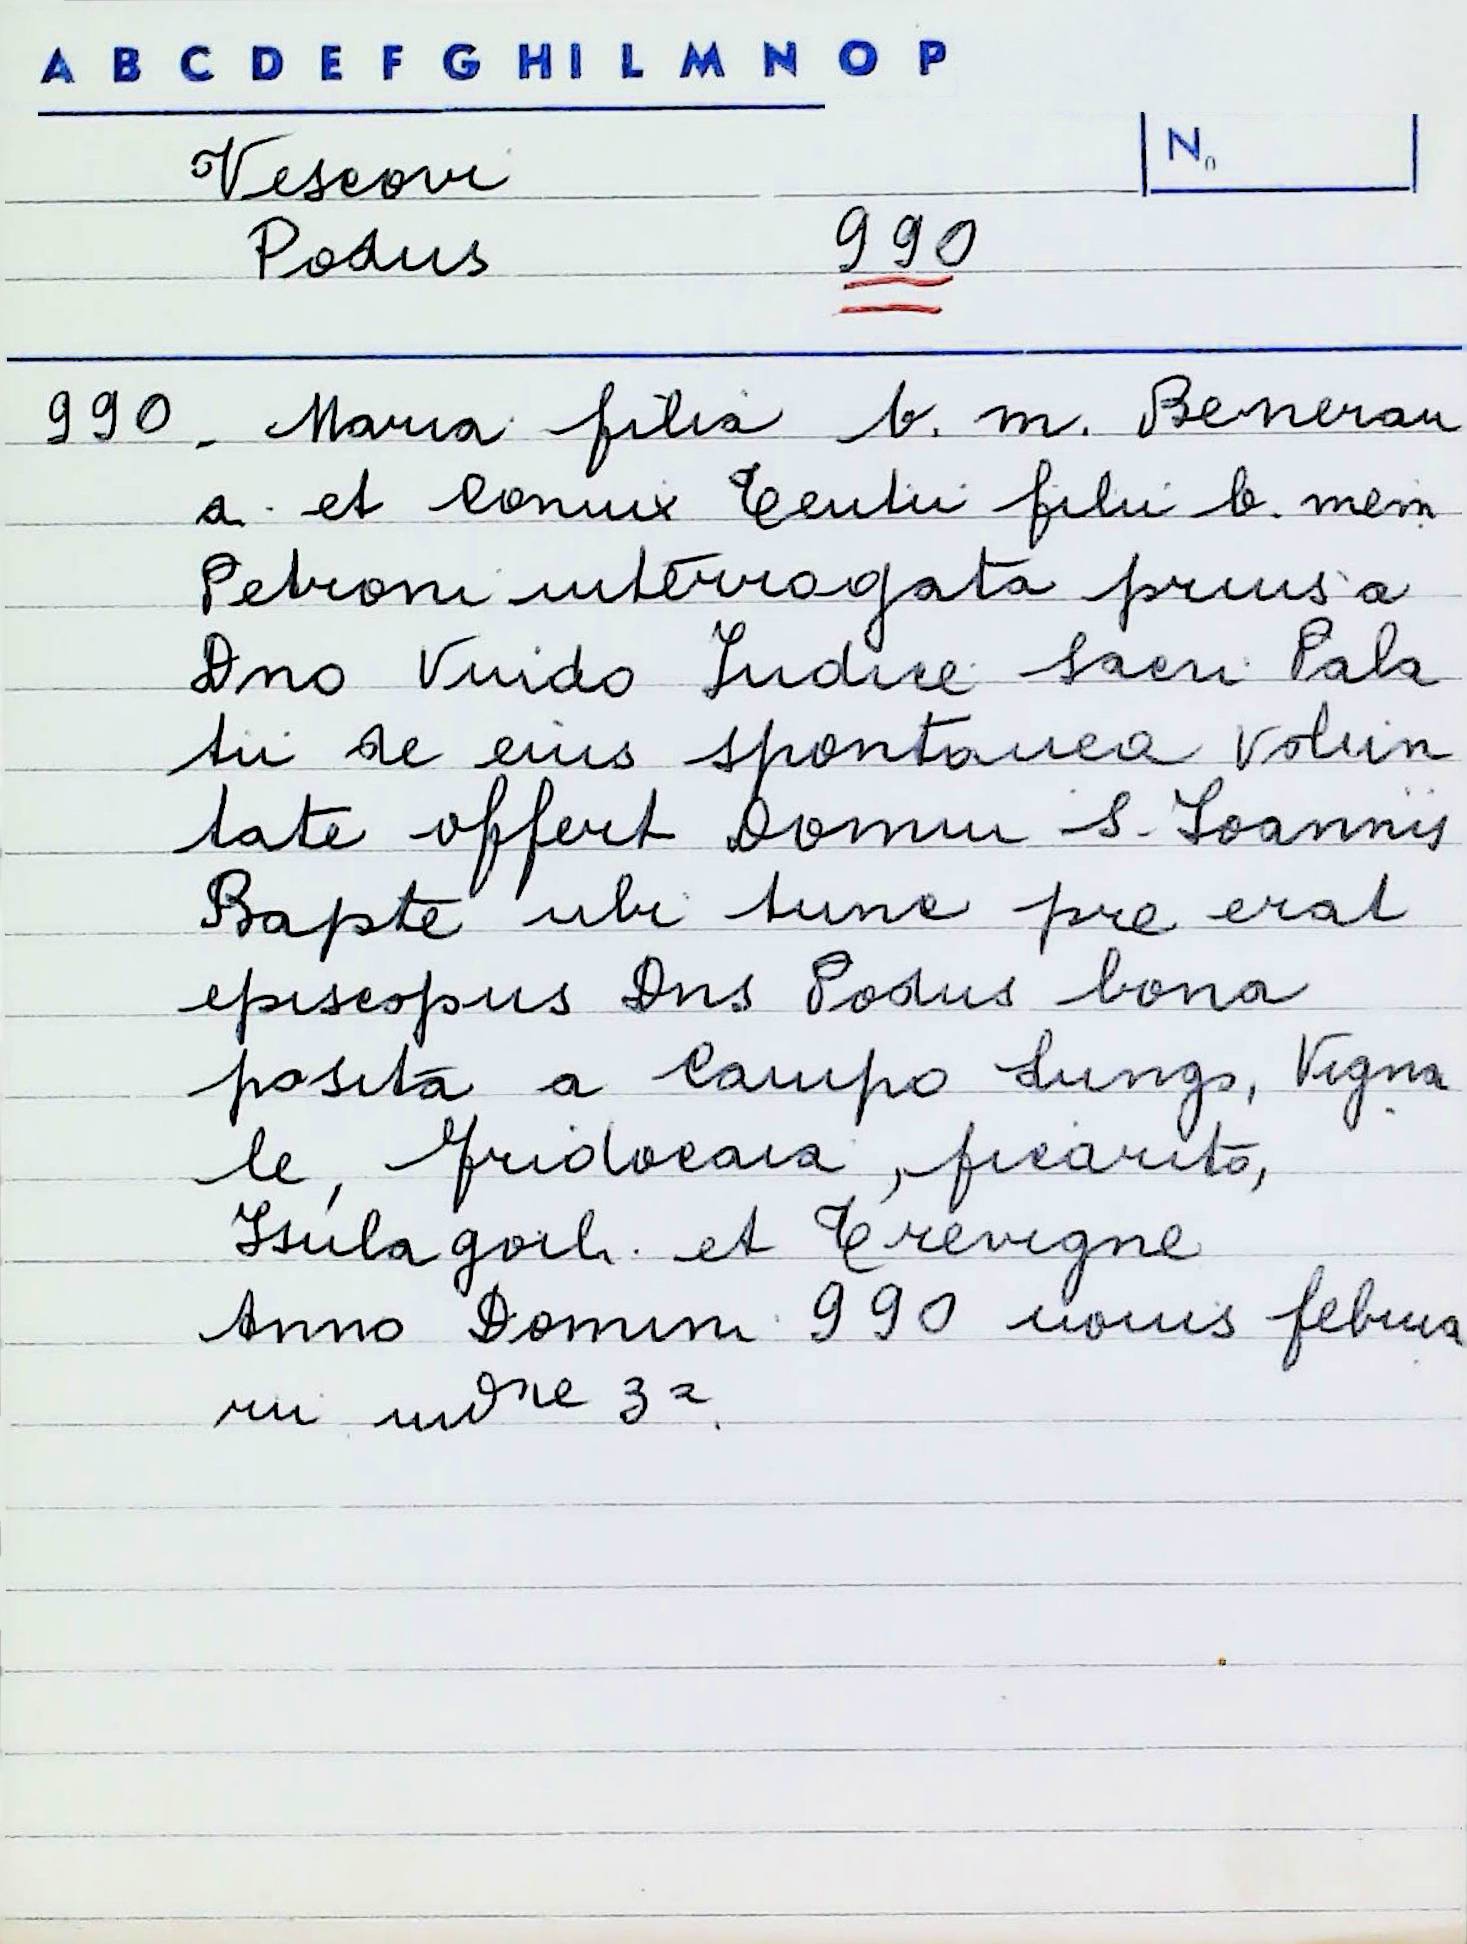 A B C D E F G H I L M N O P
N.
Vescovi
Podus 990
990. Maria filia b. m. Beneran
a. et Coniux Teutii filii b. mem
Petroni interrogata prius a
Dno Vuido Iudice Sacri Pala
tii de eius spontanea volun
tate offert Domui S. Ioannis
Bapte ubi tunc pre erat
episcopus Dns Podus bona
posita a Campo Lungo, Vigna
le, Fridocaia, ficarito,
Isula et Trevigne
Anno Domini 990 nonis februa
rii indne 3a.